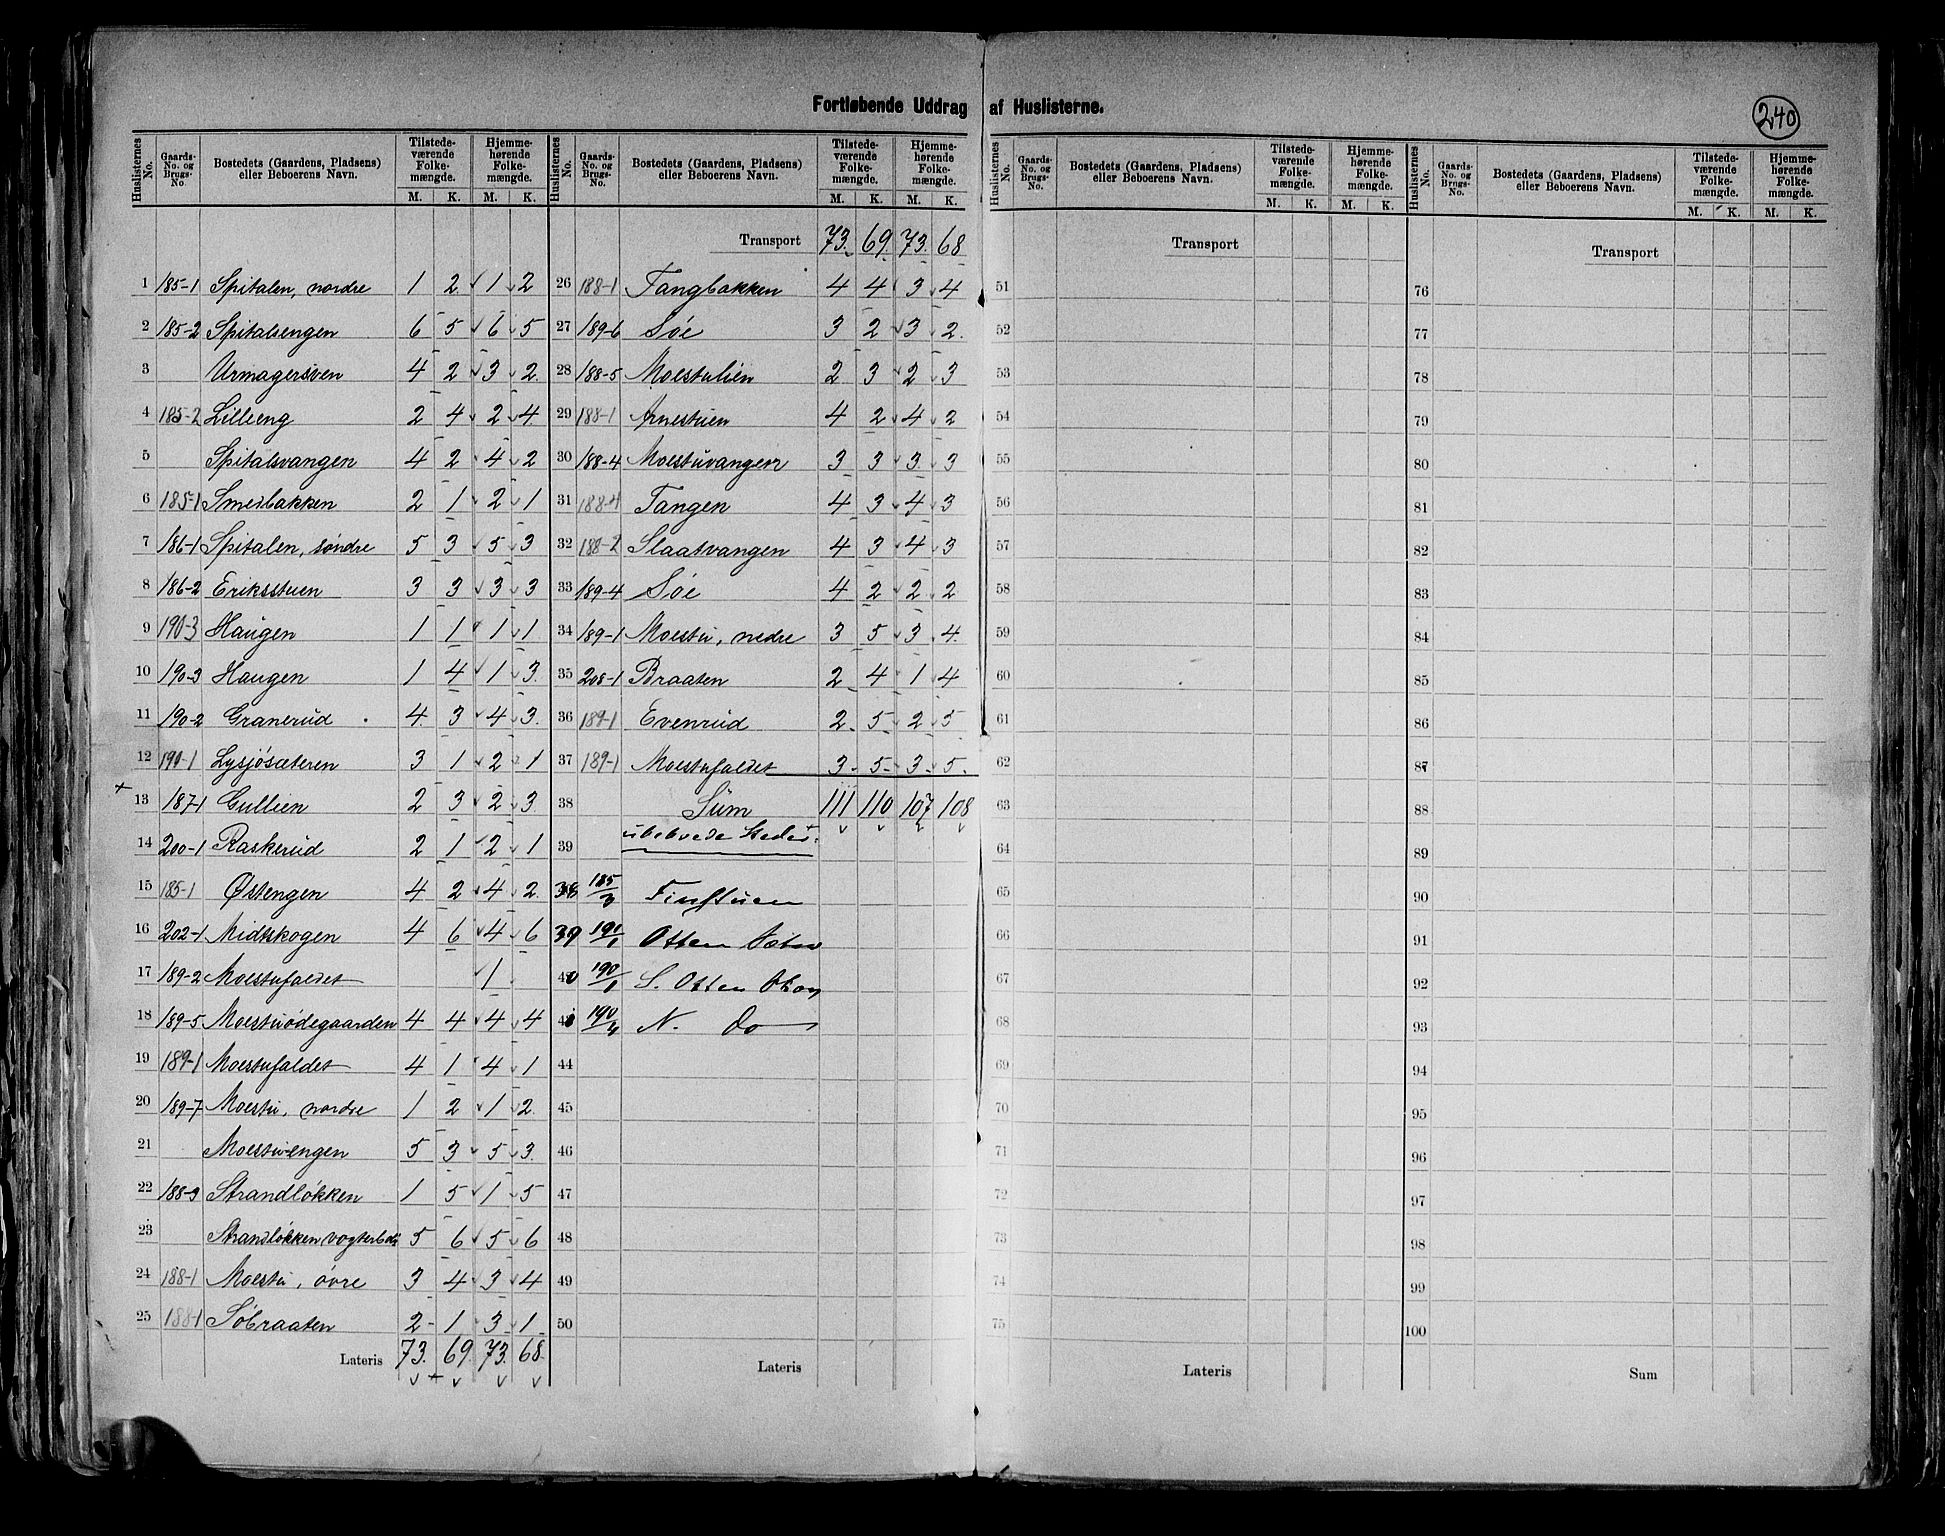 Fortløbende Uddrag af Huslisterne.
240
Huslisternes No. Gaards-No. og Brugs-No. Bostedets (Gaardens, Pladsens) eller Beboerens Navn. Tilstedeværende Folkemængde. Hjemmehørende Folkemængde.
M. K. M. K.
1 185-1 Spitalen, nordre 1 2 1 2
2 185-2 Spitalsengen 6 5 6 5
3 Urmagersven 4 2 3 2
4 185-2 Lilleeng 2 4 2 4
5 Spitalsvangen 4 2 4 2
6 185-1 Smedbakken 2 1 2 1
7 186-1 Spitalen, søndre 5 3 5 3
8 186-2 Eriksstuen 3 3 3 3
9 190-3 Haugen 1 1 1 1
10 190-3 Haugen 1 4 1 3
11 190-2 Granerud 4 3 4 3
12 190-1 Lysjösæteren 3 1 2 1
13 187-1 Gullien 2 3 2 3
14 200-1 Raskerud 2 1 2 1
15 185-1 Østengen 4 2 4 2
16 202-1 Midtskogen 4 6 4 6
17 189-2 Moestufaldet 1
18 189-5 Moestuödegaarden 4 4 4 4
19 189-1 Moestufaldet 4 1 4 1
20 189-7 Moestu, nordre 1 2 1 2
21 Moestuengen 5 3 5 3
22 188-3 Strandløkken 1 5 1 5
23 Strandløkken 5 6 5 6
24 188-1 Moestu, övre 3 4 3 4
25 188-1 Söbraaten 2 1 3 1
Lateris 73 69 73 68
Huslisternes No. Gaards-No. og Brugs-No. Bostedets (Gaardens, Pladsens) eller Beboerens Navn. Tilstedeværende Folkemængde. Hjemmehørende Folkemængde.
M. K. M. K.
Transport 73 69 73 68
26 188-1 Tangbakken 4 4 3 4
27 189-6 Söe 3 2 3 2
28 188-5 Moestulien 2 3 2 3
29 188-1 Arnestuen 4 2 4 2
30 188-4 Moestuvangen 3 3 3 3
31 188-4 Tangen 4 3 4 3
32 188-2 Slaatvangen 4 3 4 3
33 189-4 Söe 4 2 2 2
34 189-1 Moestu, nedre 3 5 3 4
35 208-1 Braaten 2 4 1 4
36 189-1 Evenrud 2 5 2 5
37 189-1 Moestufaldet 3 5 3 5
38 Sum 111 110 107 108
39 ubeboede Steder.
38 185/3 Finstuen
39 190/1 Otten
40 190/1 S. Otten
190/4 N. Do
44
45
46
47
48
49
50
Lateris
Huslisternes No. Gaards-No. og Brugs-No. Bostedets (Gaardens, Pladsens) eller Beboerens Navn. Tilstedeværende Folkemængde. Hjemmehørende Folkemængde.
M. K. M. K.
Transport
51
52
53
54
55
56
57
58
59
60
61
62
63
64
65
66
67
68
69
70
71
72
73
74
75
Lateris
Huslisternes No. Gaards-No. og Brugs-No. Bostedets (Gaardens, Pladsens) eller Beboerens Navn. Tilstedeværende Folkemængde. Hjemmehørende Folkemængde.
M. K. M. K.
Transport
76
77
78
79
80
81
82
83
84
85
86
87
88
89
90
91
92
93
94
95
96
97
98
99
100
Sum